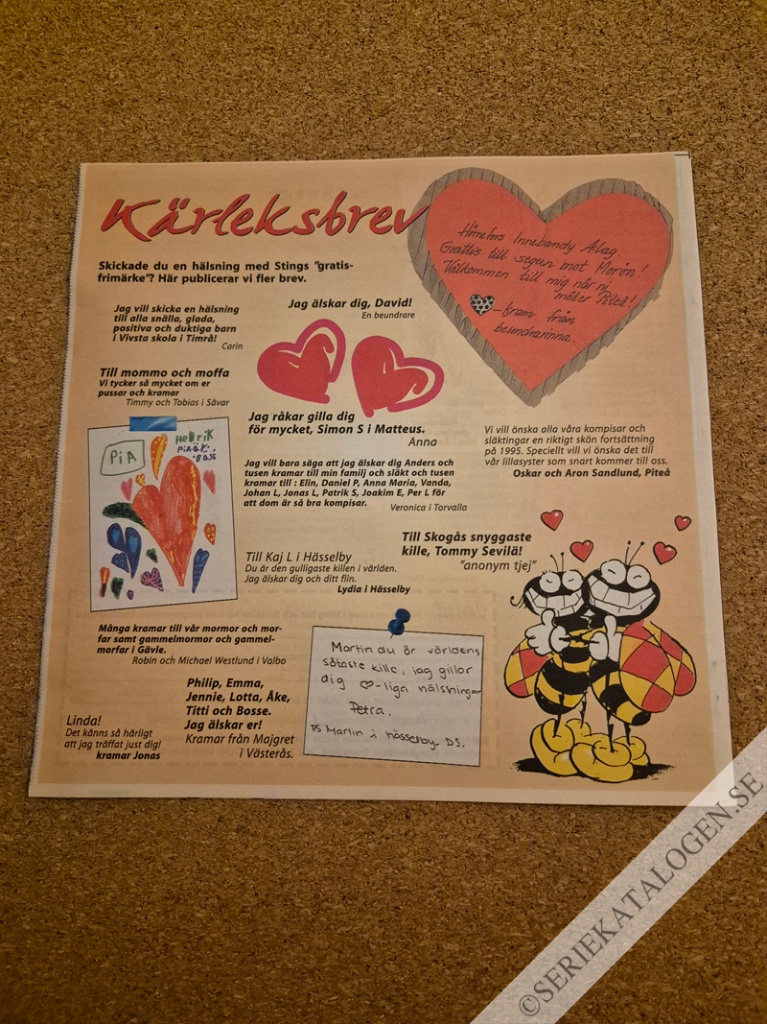 Kärleksbrev
Skickade du en hälsning med Stings "gratis-
frimärke"? Här publicerar vi fler brev.
Jag vill skicka en hälsning
till alla snälla, glada,
positiva och duktiga barn
i Vivsta skola i Timrå!
Carin
Till mommo och moffa
Vi tycker så mycket om er
pussar och kramar
Timmy och Tobias i Sävar
Jag älskar dig, David!
En beundrare
Innebandy
Grattis till segern mot Morön!
Välkommen till mig når ni
möter Piteå!
-kram från
beundrarinna.
Jag råkar gilla dig
för mycket, Simon S i Matteus.
Anna
Vi vill önska alla våra kompisar och
släktingar en riktigt skön fortsättning
på 1995. Speciellt vill vi önska det till
vår lillasyster som snart kommer till oss.
Oskar och Aron Sandlund, Piteå
PiA
HeNRiK
Jag vill bara säga att jag älskar dig Anders och
tusen kramar till min familj och släkt och tusen
kramar till : Elin, Daniel P, Anna Maria, Vanda,
Johan L, Jonas L, Patrik S, Joakim E, Per L för
att dom är så bra kompisar.
Veronica i Torvalla
Till Skogås snyggaste
kille, Tommy Sevilä!
"anonym tjej"
Till Kaj L i Hässelby
Du är den gulligaste killen i världen.
Jag älskar dig och ditt flin.
Lydia i Hässelby
Många kramar till vår mormor och mor-
far samt gammelmormor och gammel-
morfar i Gävle.
Robin och Michael Westlund i Valbo
Martin du är världens
sötaste kille, jag gillar
dig -liga hälsningar
Petra.
PS Martin i hässelby. DS.
Philip, Emma,
Jennie, Lotta, Åke,
Titti och Bosse.
Jag älskar er!
Kramar från Majgret
i Västerås.
Linda!
Det känns så härligt
att jag träffat just dig!
kramar Jonas
©SERIEKATALOGEN.SE